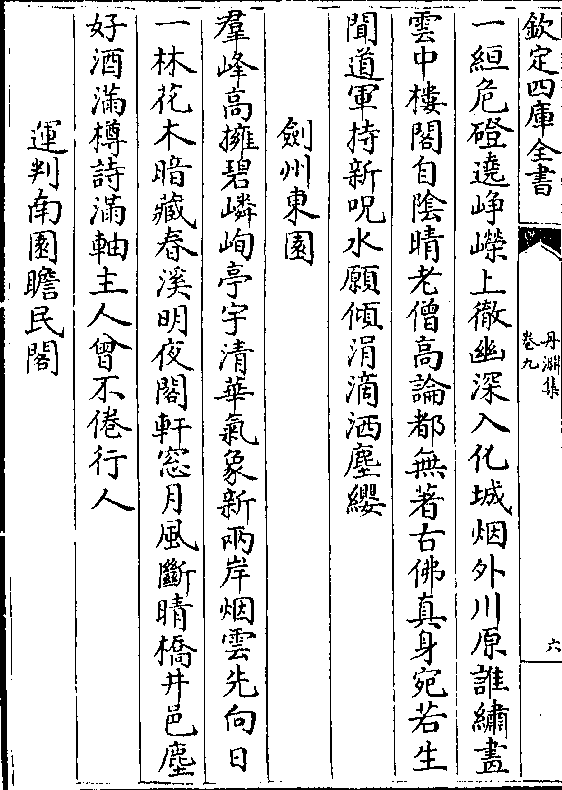 欽定四庫全書
丹淵集
卷九
六
一絙危磴遶崢嶸上徹幽深入化城烟外川原誰繡畫
雲中樓閣自陰晴老僧高論都無著古佛真身宛若生
聞道軍持新呪水願傾涓滴洒塵纓
劍州東園
羣峰高擁碧嶙峋亭宇清華氣象新兩岸烟雲先向日
一林花木暗藏春溪明夜閣軒窓月風斷晴橋井邑塵
好酒滿樽詩滿軸主人曾不倦行人
運判南園瞻民閣